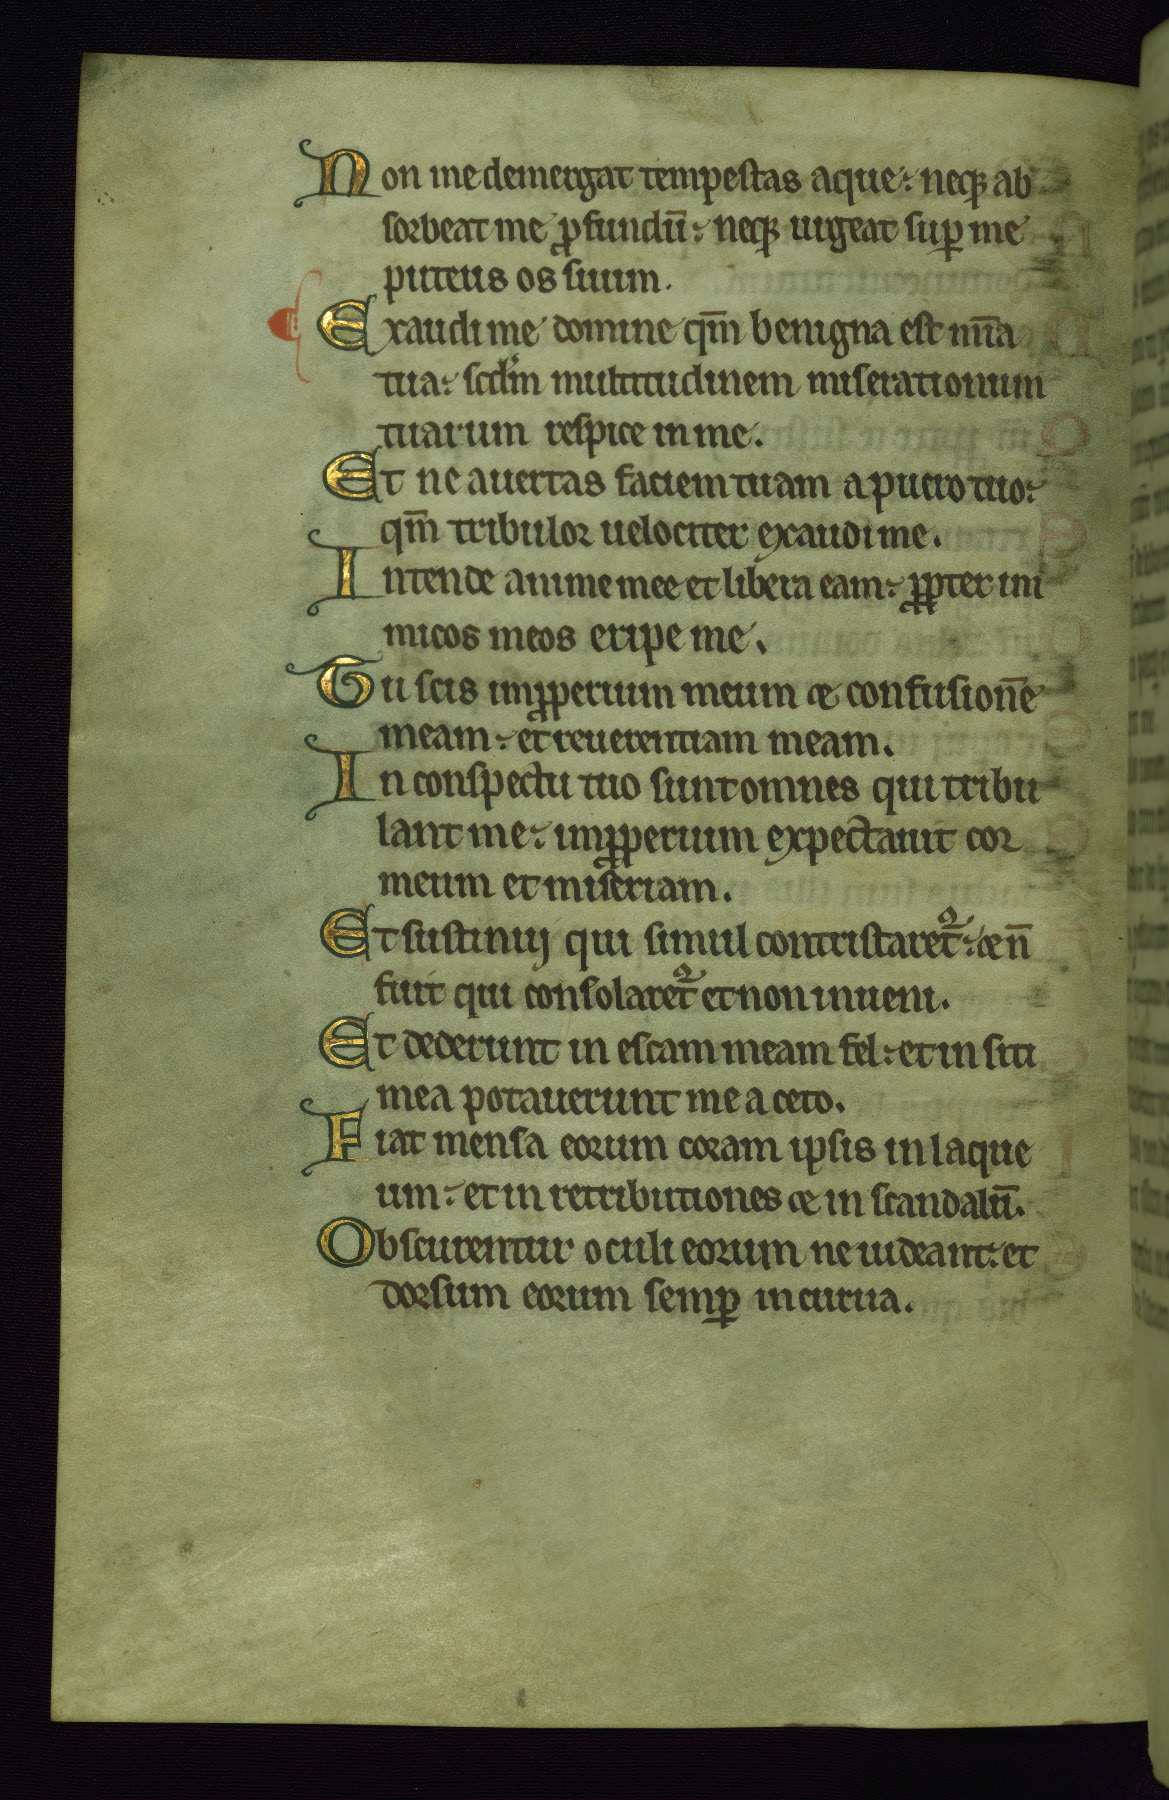 Non me demergat tempestas aque: neq; ab
sorbeat me ꝓfundū: neq; urgeat suꝑ me
puteus os suum.
Exaudi me domine qm̄ benigna est mīa
tua: scd'm multitudinem miserationum
tuarum respice in me.
Et ne auertas faciem tuam a puero tuo:
qm̄ tribulor uelociter exaudi me.
Intende anime mee et libera eam: ꝓpter ini
micos meos eripe me.
Tu scis imꝓperium meum & confusionē
meam: et reuerentiam meam.
In conspectu tuo sunt omnes qui tribu
lant me: imꝓperium expectauit cor
meum et miseriam.
Et sustinui qui simul contristaret᷑: & n̄
fuit qui consolaret᷑ et non inueni.
Et dederunt in escam meam fel: et in siti
mea potauerunt me aceto.
Fiat mensa eorum coram ipsis in laque
um: et in retributiones & in scandalū.
Obscurentur oculi eorum ne uideant: et
dorsum eorum semꝑ incurua.